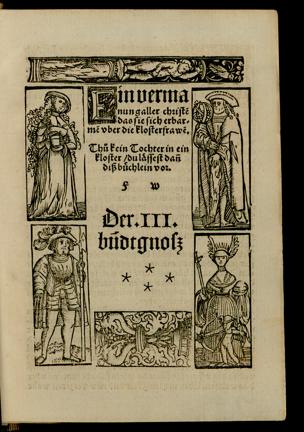 Ein verma
nung aller christē
das sie sich erbar-
mē vber die klosterfrawē.
Thů kein Tochter in ein
kloster / du lässest dañ
diß büchlein vor.
F W
Der .III.
bůdtgnosz